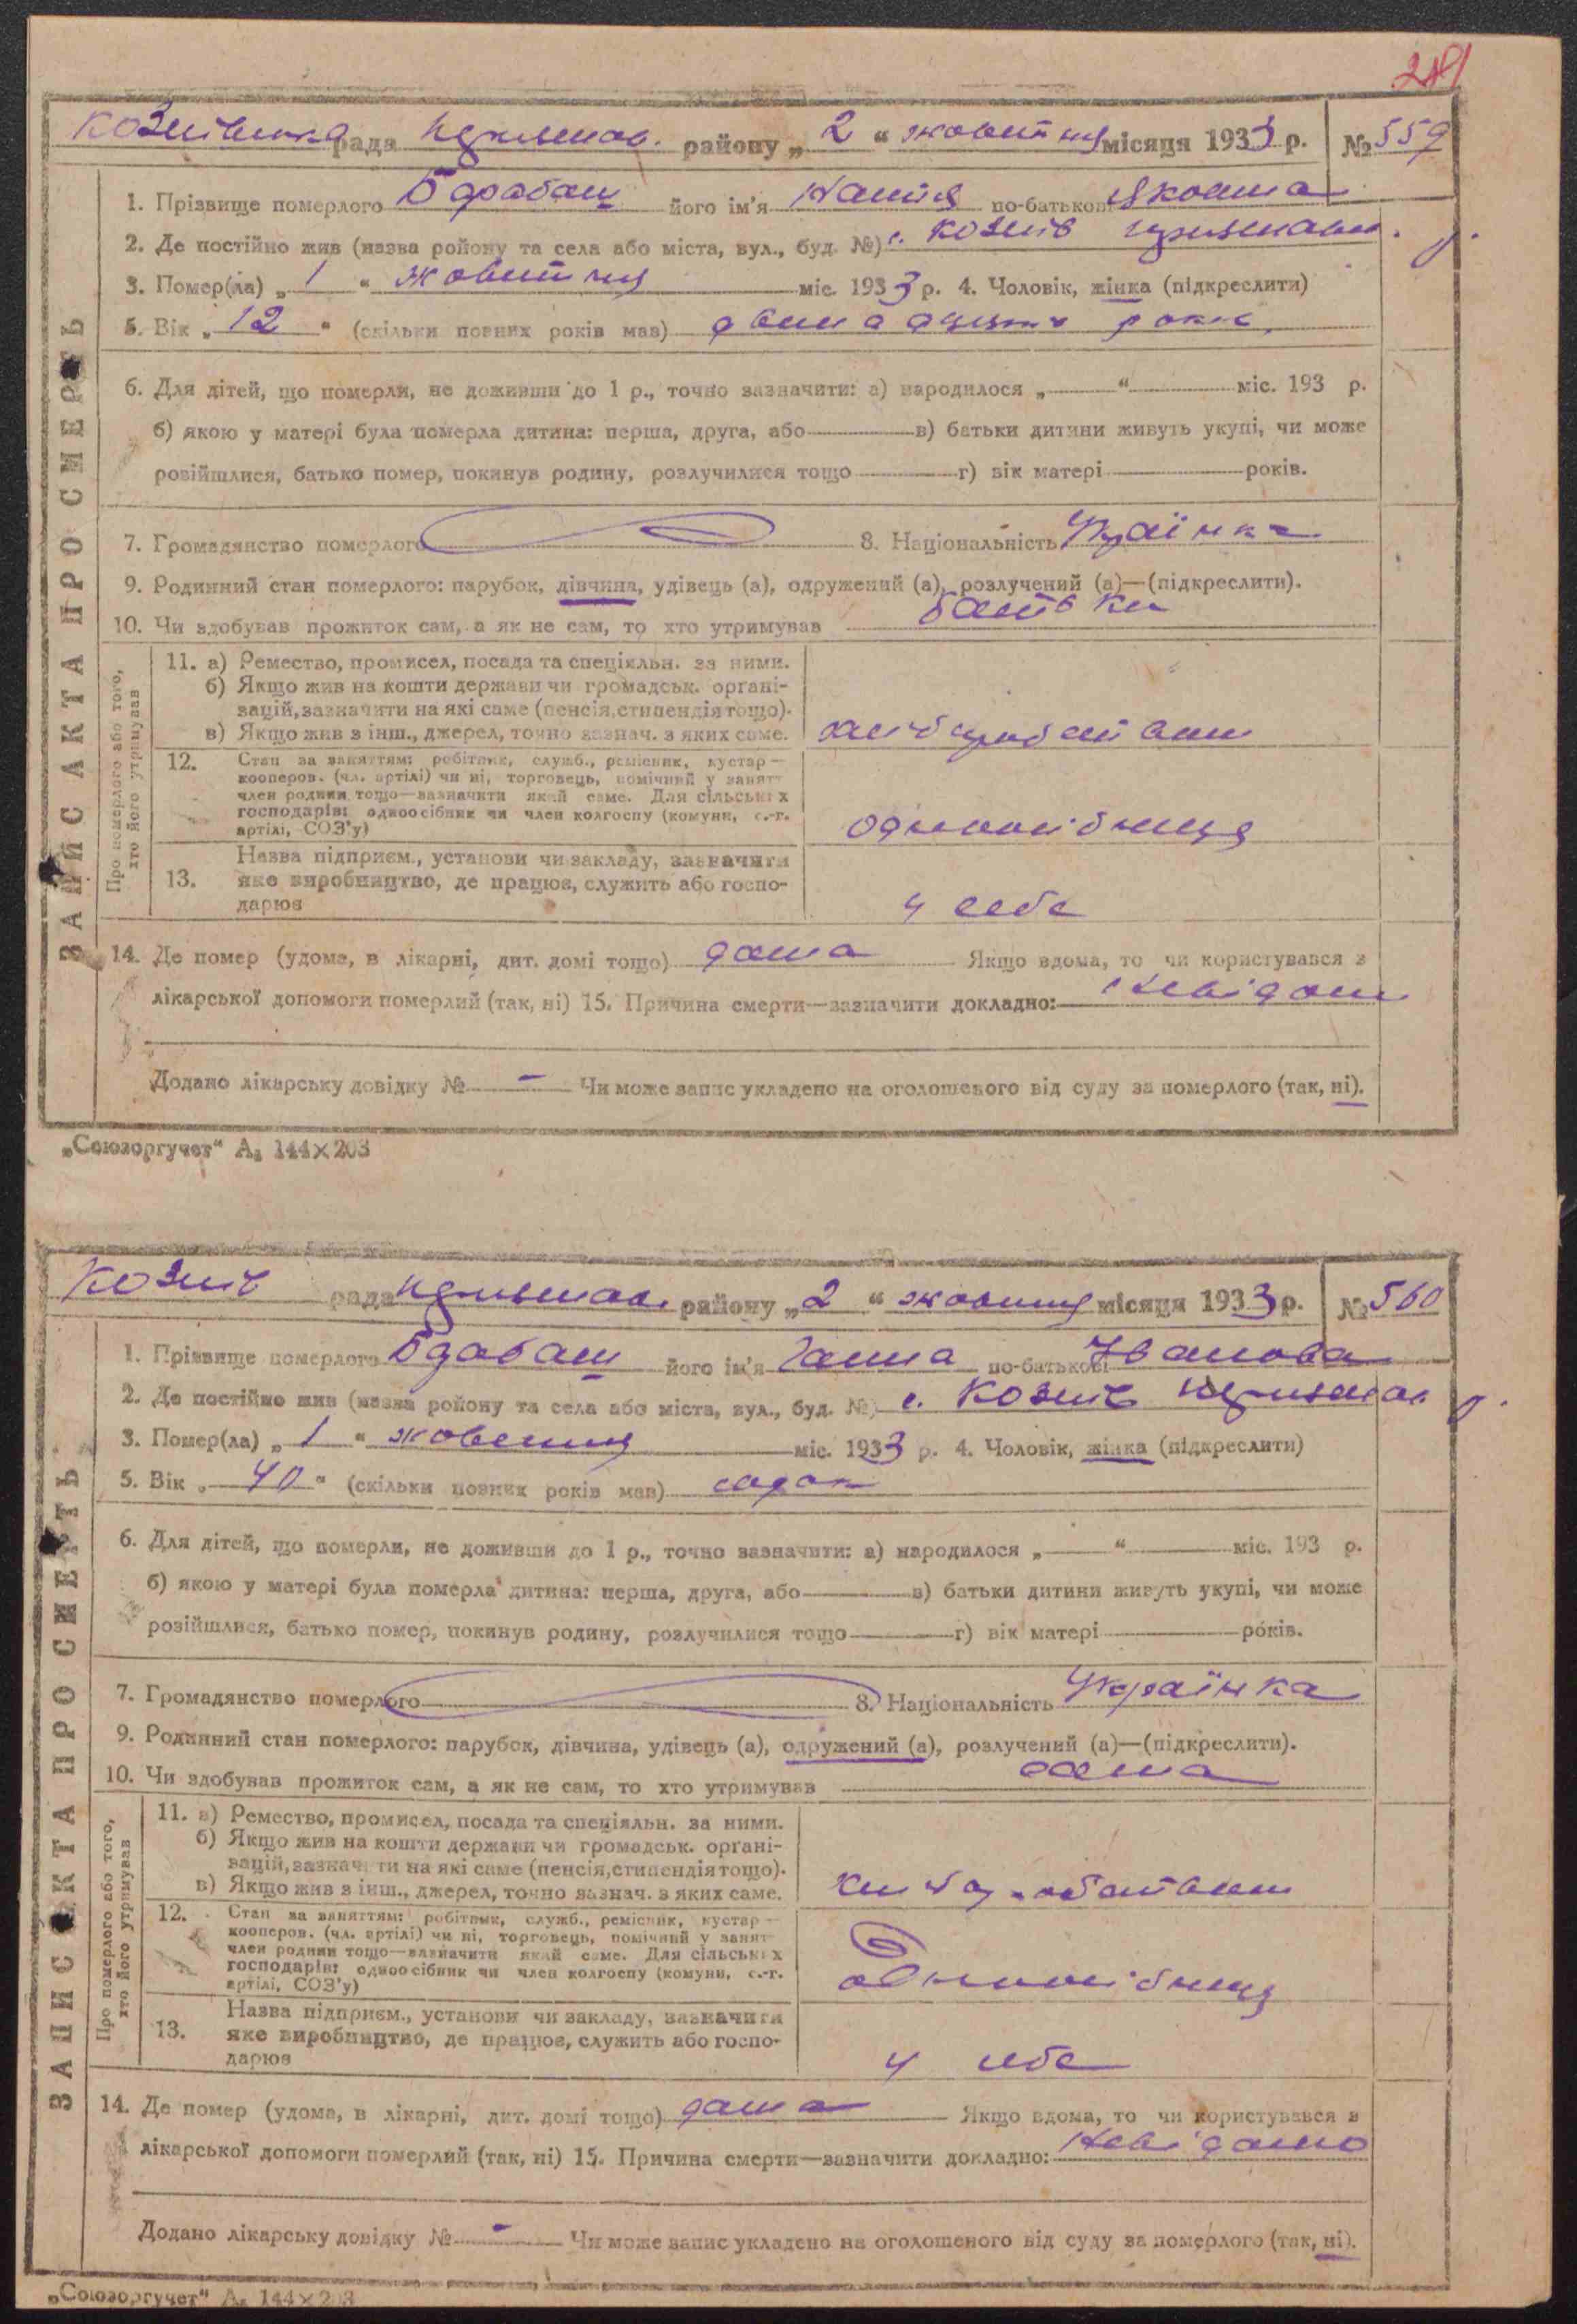 281
рада району „ 2 “ жовтня місяця 1933 р. № 559
1. Прізвище померлого Барабаш його ім'я по-батькові Яковна
2. Де постійно жив (назва ройону та села або міста, вул., буд. №) с. Козіїв р.
3. Помер(ла) „ 1 “ жовтня міс. 1933 р. 4. Чоловік, жінка (підкреслити)
5. Вік „ 12 “ (скільки повних років мав) дванадцять років
6. Для дітей, що померли, не доживши до 1 р., точно зазначити: а) народилося „ “ міс. 193 р.
б) якою у матері була померла дитина: перша, друга, або в) батьки дитини живуть укупі, чи може
розійшлися, батько помер, покинув родину, розлучилися тощо г) вік матері років.
7. Громадянство померлого 8. Національність Українка
9. Родинний стан померлого: парубок, дівчина, удівець (а), одружений (а), розлучений (а)—(підкреслити).
10. Чи здобував прожиток сам, а як не сам, то хто утримував батьки
Про померлого або того,
хто його утримував
11. а) Ремество, промисел, посада та спеціяльн. за ними.
б) Якщо жив на кошти держави чи громадськ. органі-
зацій, зазначити на які саме (пенсія, стипендія тощо).
в) Якщо жив з інш., джерел, точно зазнач. з яких саме.
12. Стан за заняттям: робітник, служб., ремісник, кустар—
кооперов. (чл. артілі) чи ні, торговець, помічний у занят
член родини тощо—зазначити який саме. Для сільських
господарів: одноосібник чи член колгоспу (комуни, с.-г.
артілі, СОЗ'у) одноосібниця
Назва підприєм., установи чи закладу, зазначити
13. яке виробництво, де працює, служить або госпо-
дарює у себе
14. Де помер (удома, в лікарні, дит. домі тощо) дома Якщо вдома, то чи користувався з
лікарської допомоги померлий (так, ні) 15. Причина смерти—зазначити докладно: Невідомо
Додано лікарську довідку № - Чи може запис укладено на оголошеного від суду за померлого (так, ні).
ЗАПИС АКТА ПРО СМЕРТЬ
„Союзоргучет“ А₅ 144×203
Козіїв рада району „ 2 “ жовтня місяця 1933 р. № 560
1. Прізвище померлого Барабаш його ім'я Ганна по-батькові Іванова
2. Де постійно жив (назва ройону та села або міста, вул., буд. №) с. Козіїв р.
3. Помер(ла) „ 1 “ жовтня міс. 1933 р. 4. Чоловік, жінка (підкреслити)
5. Вік „ 40 “ (скільки повних років мав) сорок
6. Для дітей, що померли, не доживши до 1 р., точно зазначити: а) народилося „ “ міс. 193 р.
б) якою у матері була померла дитина: перша, друга, або в) батьки дитини живуть укупі, чи може
розійшлися, батько помер, покинув родину, розлучилися тощо г) вік матері років.
7. Громадянство померлого 8. Національність Українка
9. Родинний стан померлого: парубок, дівчина, удівець (а), одружений (а), розлучений (а)—(підкреслити).
10. Чи здобував прожиток сам, а як не сам, то хто утримував сама
Про померлого або того,
хто його утримував
11. а) Ремество, промисел, посада та спеціяльн. за ними.
б) Якщо жив на кошти держави чи громадськ. органі-
зацій, зазначити на які саме (пенсія, стипендія тощо).
в) Якщо жив з інш., джерел, точно зазнач. з яких саме.
12. Стан за заняттям: робітник, служб., ремісник, кустар—
кооперов. (чл. артілі) чи ні, торговець, помічний у занят
член родини тощо—зазначити який саме. Для сільських
господарів: одноосібник чи член колгоспу (комуни, с.-г.
артілі, СОЗ'у) одноосібниця
Назва підприєм., установи чи закладу, зазначити
13. яке виробництво, де працює, служить або госпо-
дарює у себе
14. Де помер (удома, в лікарні, дит. домі тощо) дома Якщо вдома, то чи користувався з
лікарської допомоги померлий (так, ні) 15. Причина смерти—зазначити докладно: Невідомо
Додано лікарську довідку № - Чи може запис укладено на оголошеного від суду за померлого (так, ні).
ЗАПИС АКТА ПРО СМЕРТЬ
„Союзоргучет“ А₅ 144×203